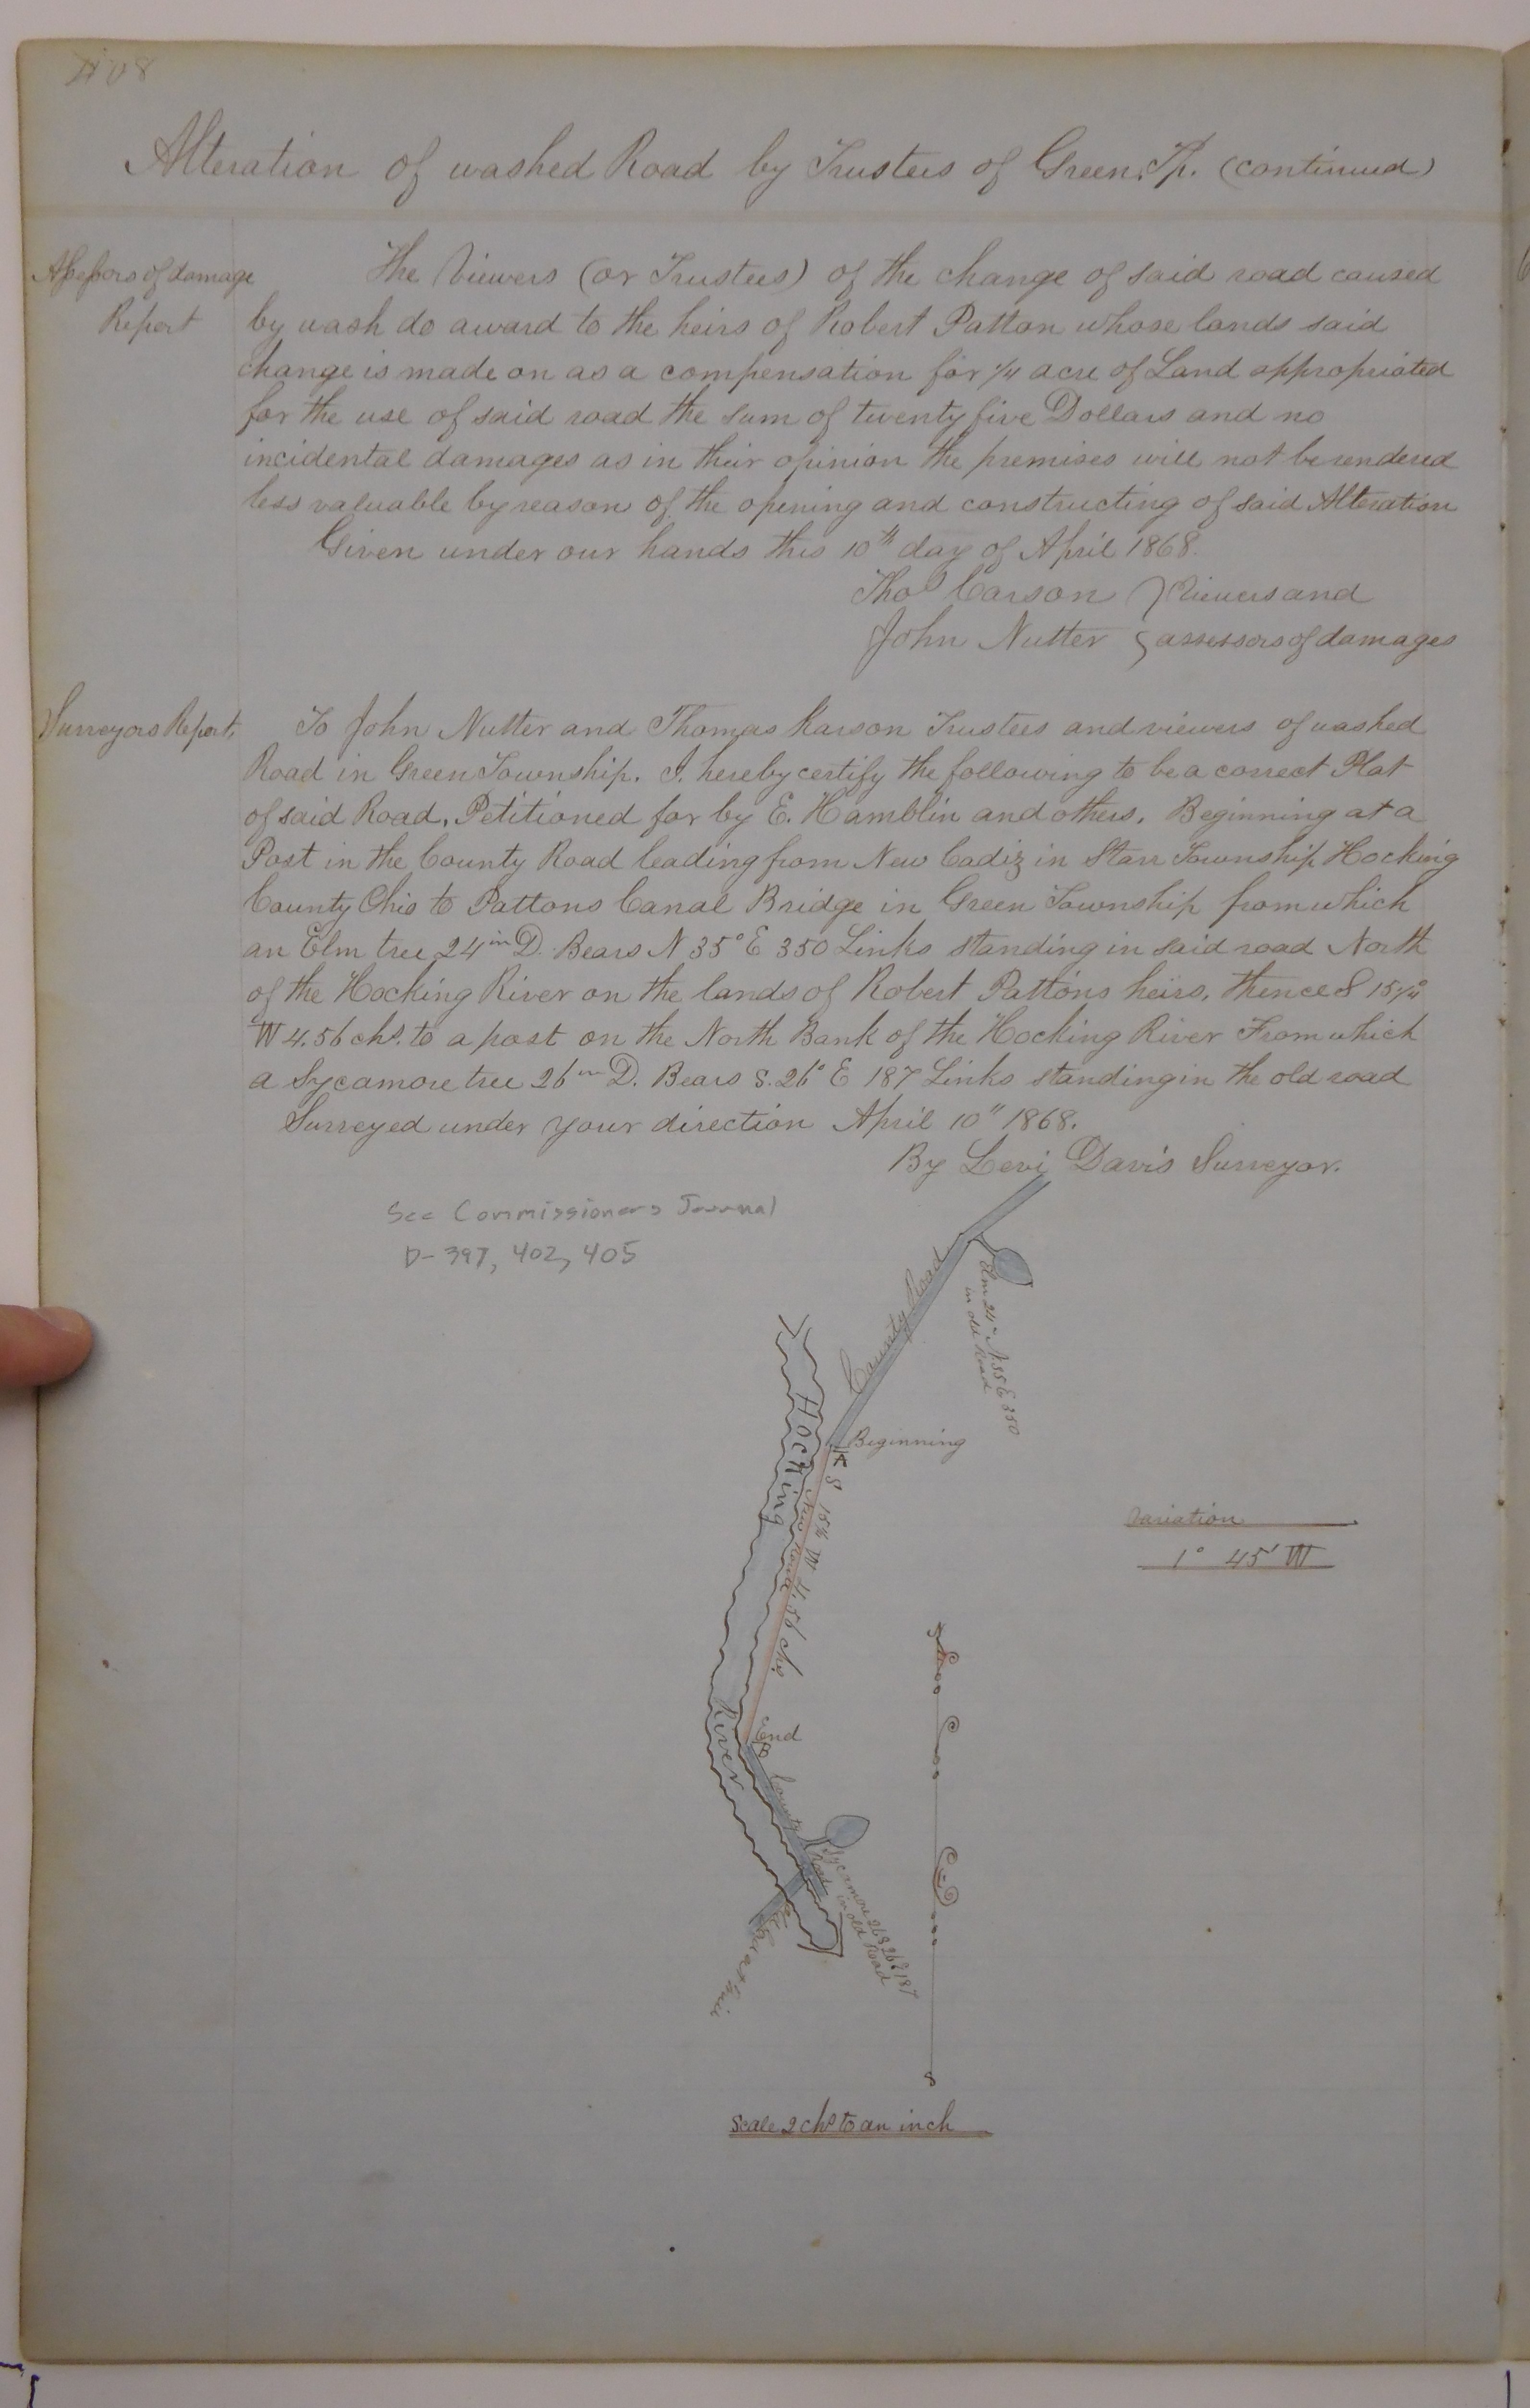 408
Alteration of washed Road by Trustees of Green. Tp. (continued)
Assessors of damage
Report
The Viewers (or Trustees) of the change of said road caused
by wash do award to the heirs of Robert Patton whose lands said
change is made on as a compensation for 1/4 acre of Land appropriated
for the use of said road the sum of twenty five Dollars and no
incidental damages as in their opinion the premises will not be rendered
less valuable by reason of the opening and constructing of said Alteration
Given under our hands this 10th day of April 1868.
Thos Carson } Viewers and
John Nutter } assessors of damages
Surveyors Report.
To John Nutter and Thomas Karson Trustees and viewers of washed
Road in Green Township. I hereby certify the following to be a correct Plat
of said Road, Petitioned for by E. Hamblin and others. Beginning at a
Post in the County Road leading from New Cadiz in Starr Township Hocking
County Ohio to Pattons Canal Bridge in Green Township from which
an Elm tree 24 in D. Bears N 35° E 350 Links standing in said road North
of the Hocking River on the lands of Robert Pattons heirs, thence S 15 1/4°
W 4.56 chs. to a post on the North Bank of the Hocking River From which
a Sycamore tree 26 in D. Bears S. 26° E 187 Links standing in the old road
Surveyed under your direction April 10" 1868.
By Levi Davis Surveyor.
See Commissioners Journal
D-397, 402, 405
County Road
Elm 24" N 35 E 350
in old Road
Hocking
Beginning
A
S 15 1/4 W 4.56 chs
New Road
Variation
1° 45' W
River
End
B
County
Road
Sycamore 26 S 26 E 187
in old Road
S
Scale 2 chs to an inch